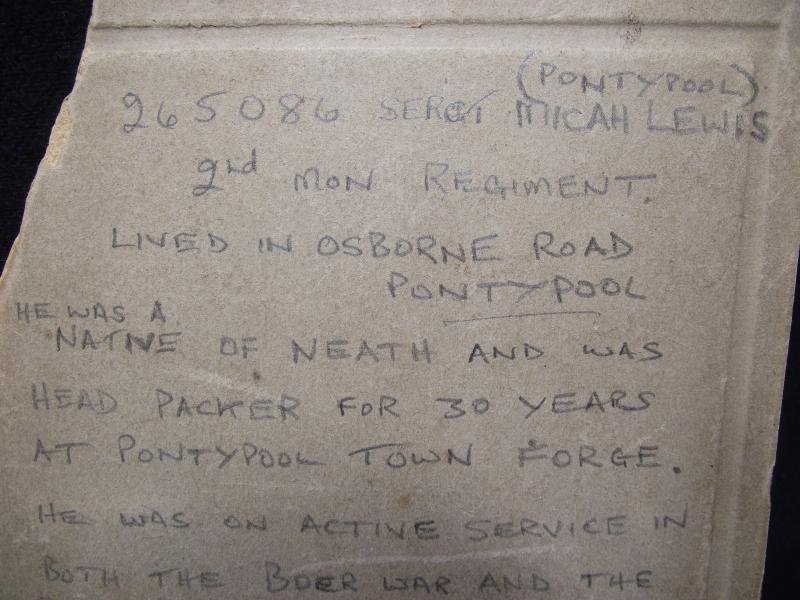 (PONTYPOOL)
265086 SERGT MICAH LEWIS
2nd MON REGIMENT.
LIVED IN OSBORNE ROAD
PONTYPOOL
HE WAS A
NATIVE OF NEATH AND WAS
HEAD PACKER FOR 30 YEARS
AT PONTYPOOL TOWN FORGE.
HE WAS ON ACTIVE SERVICE IN
BOTH THE BOER WAR AND THE